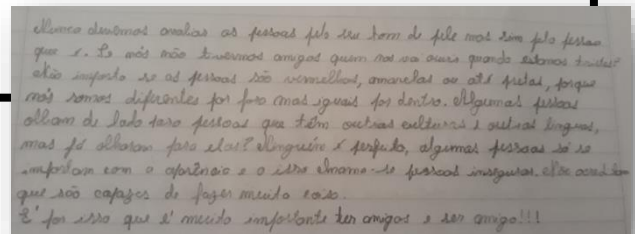 Nunca devemos avaliar as pessoas pelo seu tom de pele mas sim pela pessoa
que é. Se nós não tivermos amigos quem nos vai ouvir quando estamos tristes?
Não importa se as pessoas são vermelhas, amarelas ou até pretas, porque
nós somos diferentes por fora mas iguais por dentro. Algumas pessoas
olham de lado para pessoas que têm outras culturas e outras línguas,
mas já olharam para elas? Ninguém é perfeito, algumas pessoas só se
importam com a aparência e a isso chama-se pessoas inseguras. Não acreditam
que são capazes de fazer muita coisa.
É por isso que é muito importante ter amigos e ser amigo!!!